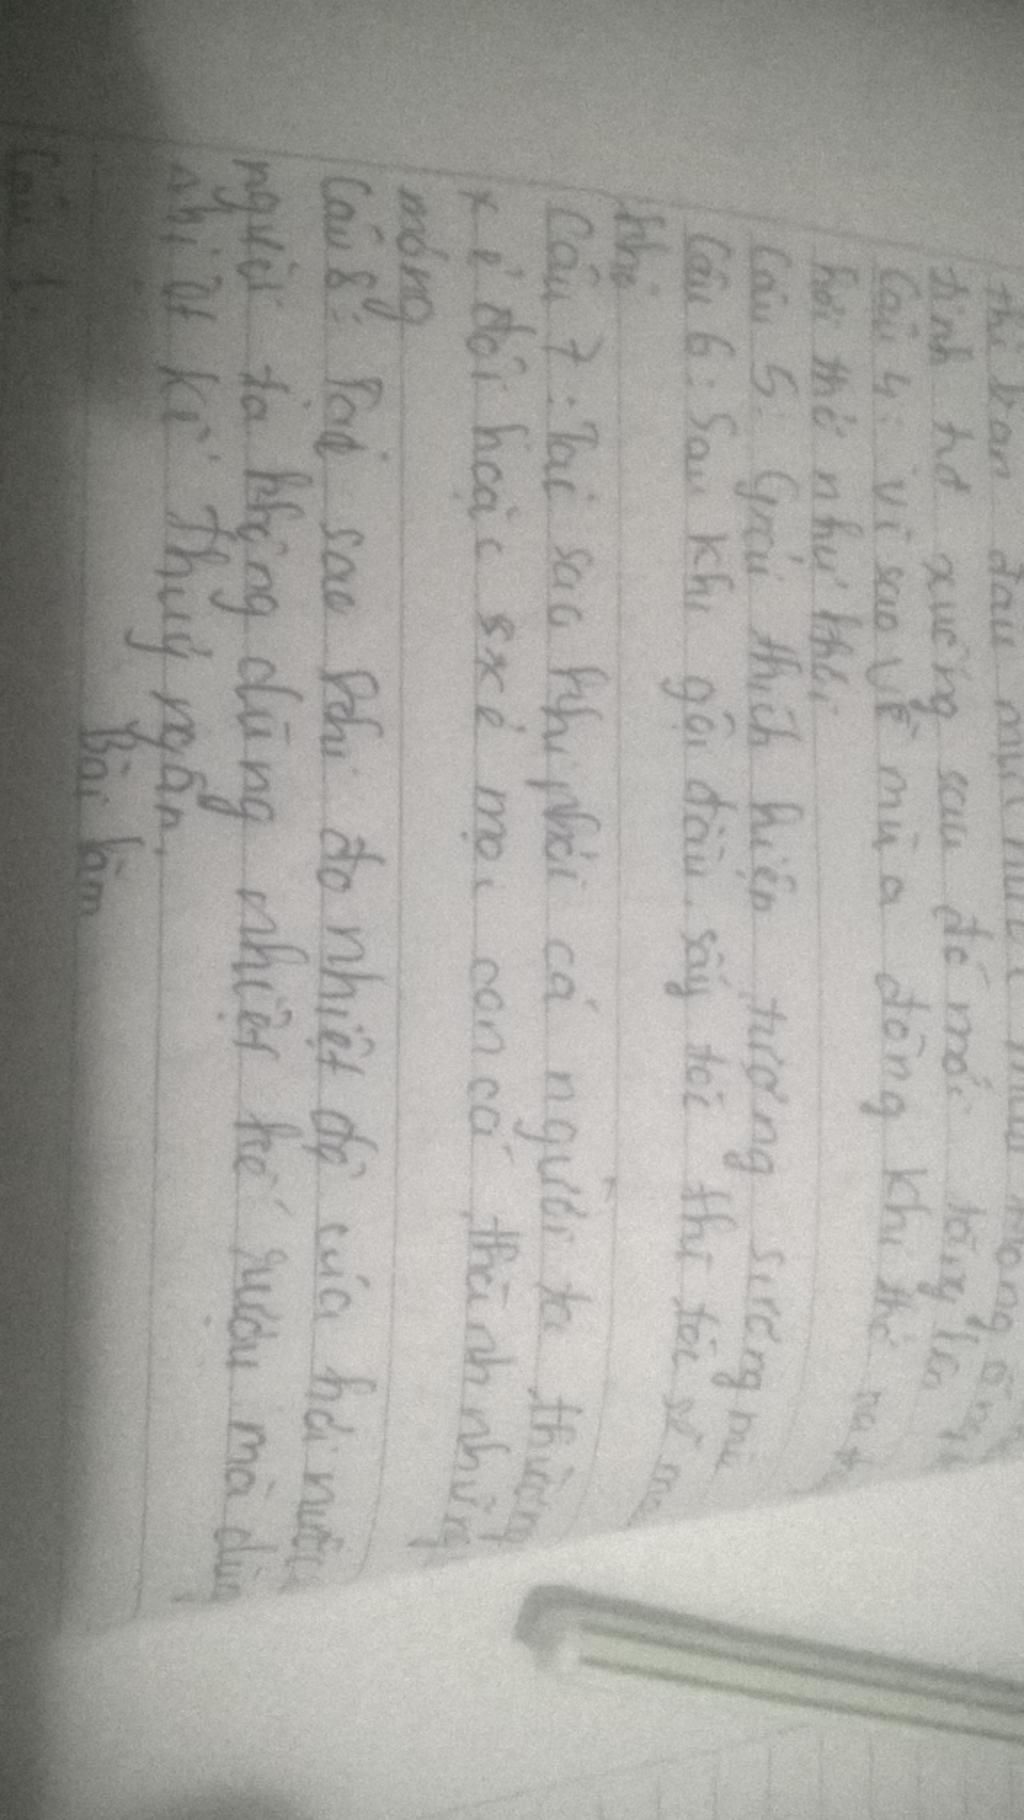 thì ban đầu mực nước
tình hơ xuống sau đó mới tăng lên
Câu 4: Vì sao Về mùa đông khi thở
hơi thở như thói
Câu 5: Giải thích hiện tượng sương mù
Câu 6: Sau khi gội đầu, sấy tóc thì tóc sẽ
khô
Câu 7: Tại sao khi phơi cá người ta thường
xẻ đôi hoặc sxẻ mọi con cá thành những
mỏng
Câu 8: Tại sao khi đo nhiệt độ của hơi nước
người ta không dùng nhiệt kế rượu mà dùng
nhiệt kế Thuỷ ngân.
Bài làm
Câu 1: